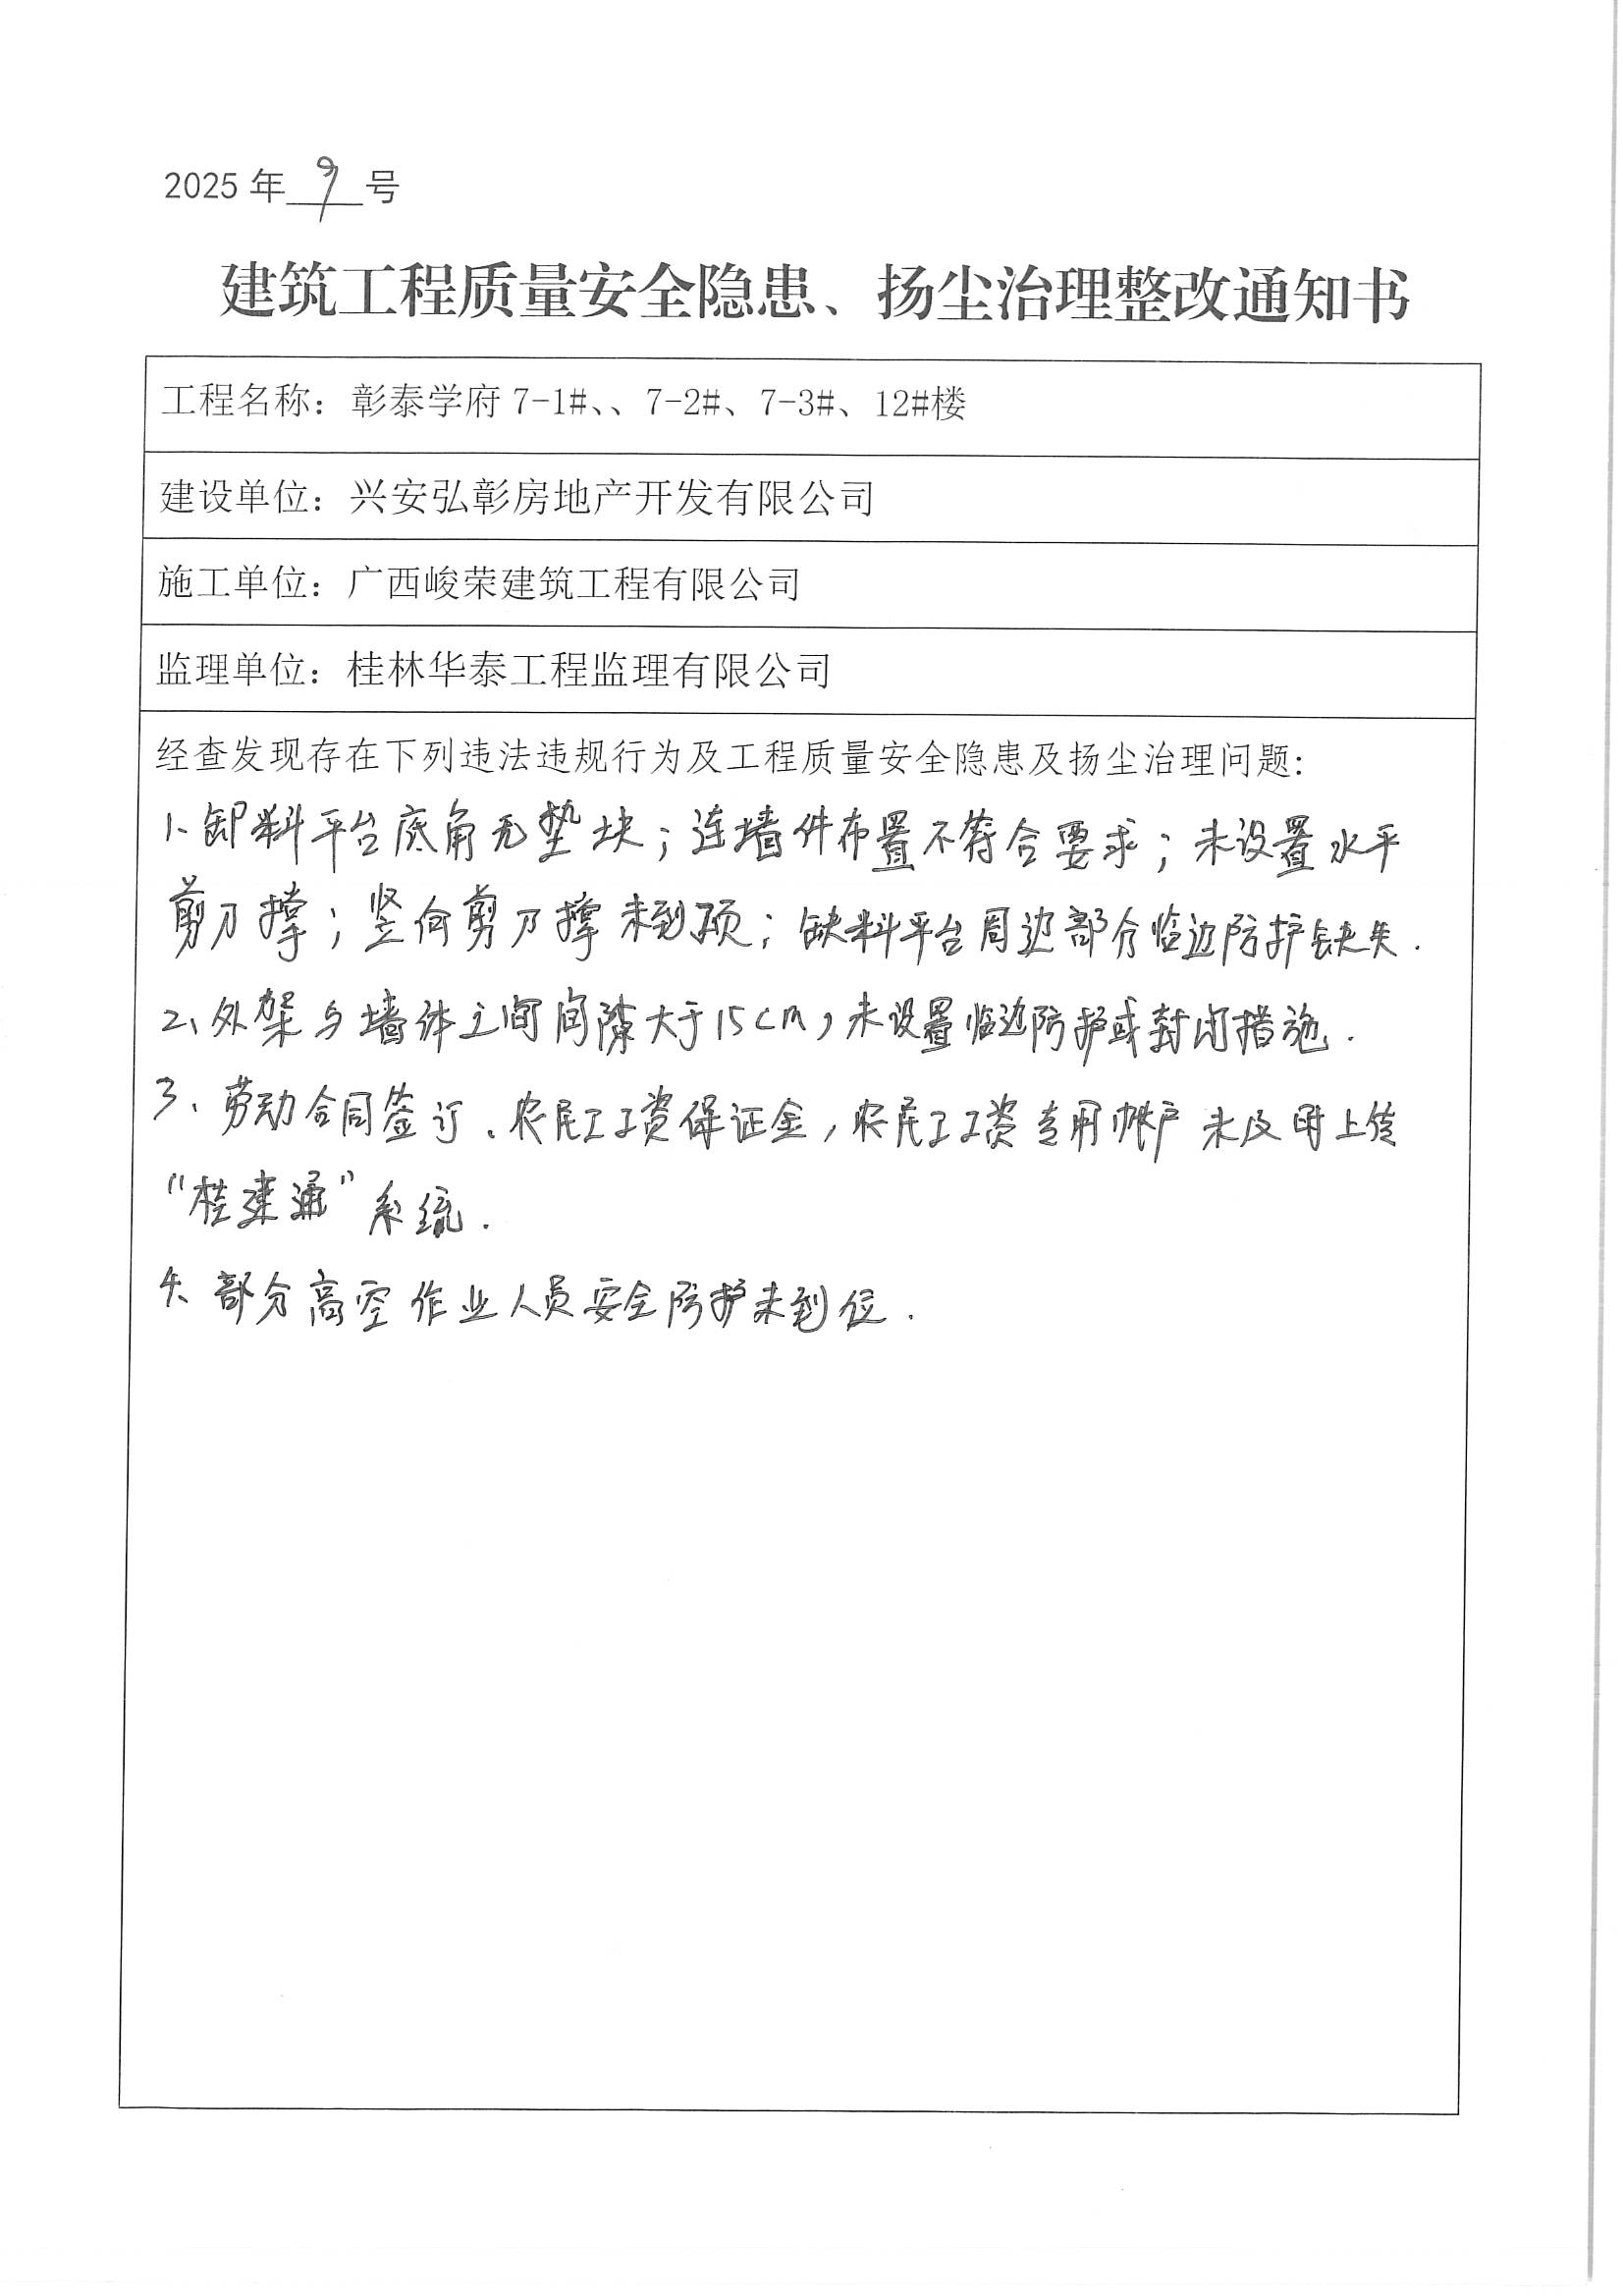 2025年 9 号
建筑工程质量安全隐患、扬尘治理整改通知书
工程名称：彰泰学府 7-1#、、7-2#、7-3#、12#楼
建设单位：兴安弘彰房地产开发有限公司
施工单位：广西峻荣建筑工程有限公司
监理单位：桂林华泰工程监理有限公司
经查发现存在下列违法违规行为及工程质量安全隐患及扬尘治理问题：
1、卸料平台底角无垫块；连墙件布置不符合要求；未设置水平
剪刀撑；竖向剪刀撑未到顶；缺料平台周边部分临边防护缺失.
2、外架与墙体之间间隙大于15cm，未设置临边防护或封闭措施.
3、劳动合同签订、农民工工资保证金，农民工工资专用帐户未及时上传
“桂建通”系统.
4、部分高空作业人员安全防护未到位.